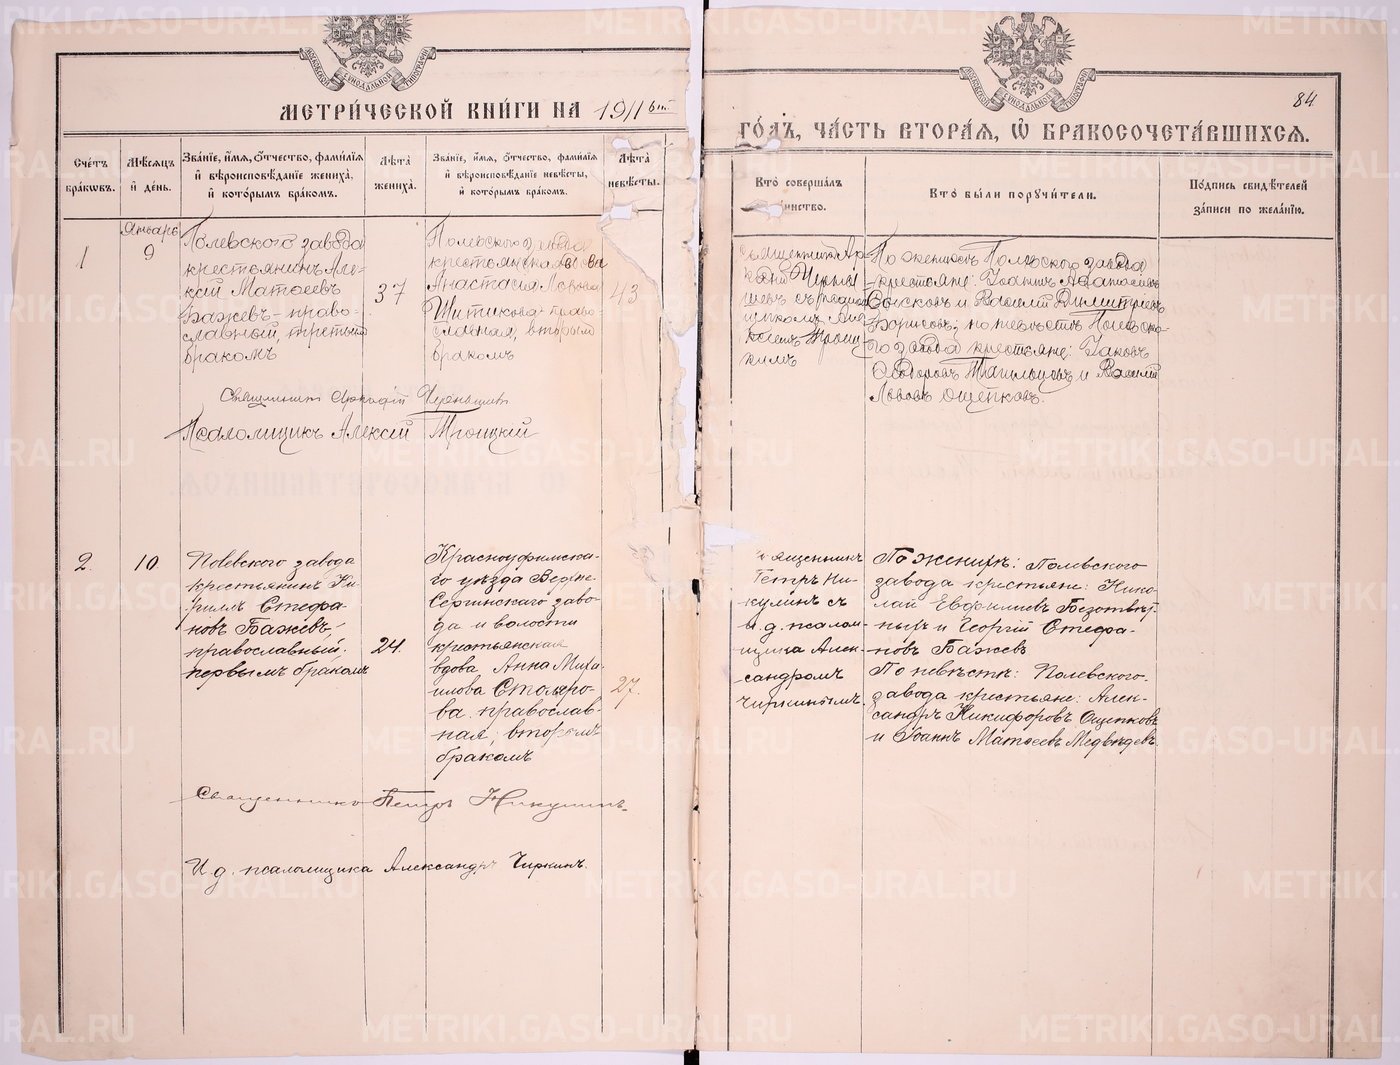 МЕТРИ́ЧЕСКОЙ КНИ́ГИ НА 1911 ый
ГО́ДЪ, ЧА́СТЬ ВТОРА́Я, Ѡ҆ БРАКОСОЧЕТА́ВШИХСЯ.
84
МОСКОВСКОЙ СѴНОДАЛЬНОЙ ТИПОГРАФІИ
МОСКОВСКОЙ СѴНОДАЛЬНОЙ ТИПОГРАФІИ
Сче́тъ бра́кѡвъ.
Мѣ́сяцъ и҆ де́нь.
Зва́ніе, и҆́мя, ѻ҆́тчество, фами́лія и҆ вѣроисповѣ́даніе жениха̀, и҆ кото́рымъ бра́комъ.
Лѣ́та жениха̀.
Зва́ніе, и҆́мя, ѻ҆́тчество, фами́лія и҆ вѣроисповѣ́даніе невѣ́сты, и҆ кото́рымъ бра́комъ.
Лѣ́та невѣ́сты.
Кто̀ соверша́лъ
инство.
Кто̀ бы́ли порꙋчи́тели.
По́дпись свидѣ́телей за́писи по жела́нію.
1
Январь
9
Полевского завода
крестьянинъ Але-
ксій Матѳеевъ
Бажевъ - право-
славный, третьим
бракомъ
37
Полевского завода
крестьянская вдова
Анастасія Львова
Шитикова - право-
славная, вторым
бракомъ
43
Священникъ Ар-
кадій Черны
шевъ съ псалом
щикомъ Але
ксіемъ Троиц
кимъ
По женихѣ: Полевского завода
крестьяне: Іоаннъ
и Василій Димитріевъ
Борисовъ; по невѣстѣ Полевско-
го завода крестьяне: Іаковъ
Ѳеодоровъ и Василій
Львовъ Ощепковъ.
Священникъ Аркадій Чернышевъ
Псаломщикъ Алексій Троицкій
2.
10
Полевского завода
крестьянинъ Ки-
риллъ Стефа-
новъ Бажевъ,
православный,
первымъ бракомъ
24.
Красноуфимска-
го уѣзда Верхне-
Сергинскаго заво-
да и волости
крестьянская
вдова Анна Миха-
илова Столяро-
ва. православ-
ная, вторымъ
бракомъ
27.
ященникъ
Петръ Ни-
кулинъ съ
и. д. псалом-
щика Алек-
сандромъ
Чиркинымъ.
По женихѣ: Полевского
завода крестьяне: Нико-
лай Безотвѣт-
ныхъ и Георгій Стефа-
новъ Бажевъ
По невѣстѣ: Полевского
завода крестьяне: Алек-
сандръ Никифоровъ Ощепковъ
и Іоаннъ Матѳеевъ Медвѣдевъ
Священникъ Петръ Никулинъ.
И. д. псаломщика Александръ Чиркинъ.
METRIKI.GASO-URAL.RU